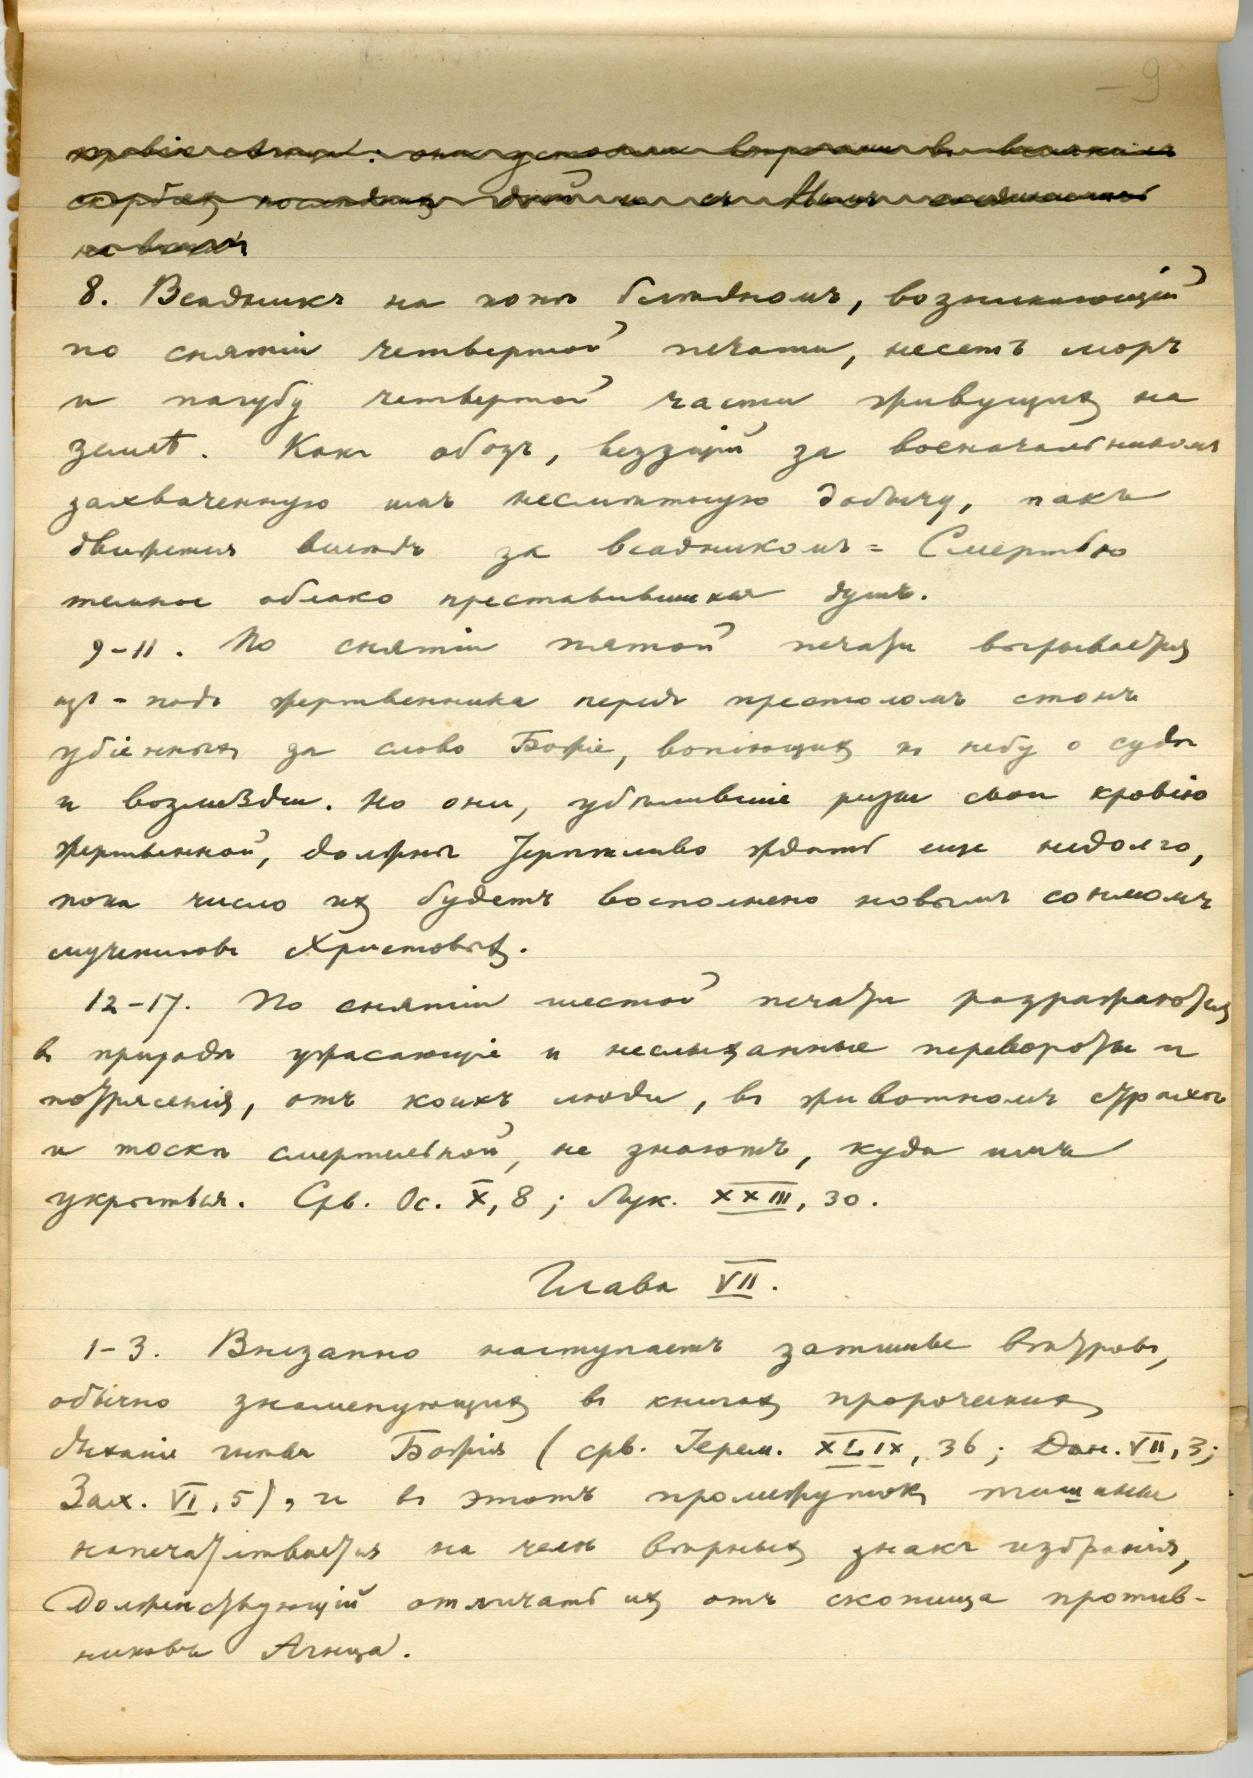 – 9
8. Всадникъ на конѣ блѣдномъ, возникающій
по снятіи четвертой печати, несетъ моръ
и пагубу четвертой части живущихъ на
землѣ. Какъ обозъ, везущій за военачальникомъ
захваченную имъ несмѣтную добычу, такъ
движется вслѣдъ за всадникомъ = Смертью
темное облако преставившихся душъ.
9–11. По снятіи пятой печати вырывается
изъ-подъ жертвенника передъ престоломъ стонъ
убіенныхъ за слово Божіе, вопіющихъ къ небу о судѣ
и возмездіи. Но они, убѣлившіе ризы свои кровію
жертвенной, должны терпѣливо ждать еще недолго,
пока число ихъ будетъ восполнено новымъ сонмомъ
мучениковъ Христовыхъ.
12–17. По снятіи шестой печати разражаются
въ природѣ ужасающіе и неслыханные перевороты и
потрясенія, отъ коихъ люди, въ животномъ страхѣ
и тоскѣ смертельной, не знаютъ, куда имъ
укрыться. Срв. Ос. X, 8; Лук. XXIII, 30.
Глава VII.
1–3. Внезапно наступаетъ затишье вѣтровъ,
обычно знаменующихъ въ книгахъ пророческихъ
дыханіе гнѣва Божія (срв. Іерем. XLIX, 36; Дан. VII, 3;
Зах. VI, 5), и въ этотъ промежутокъ тишины
напечатлѣвается на челѣ вѣрныхъ знакъ избранія,
долженствующій отличать ихъ отъ скопища против-
никовъ Агнца.